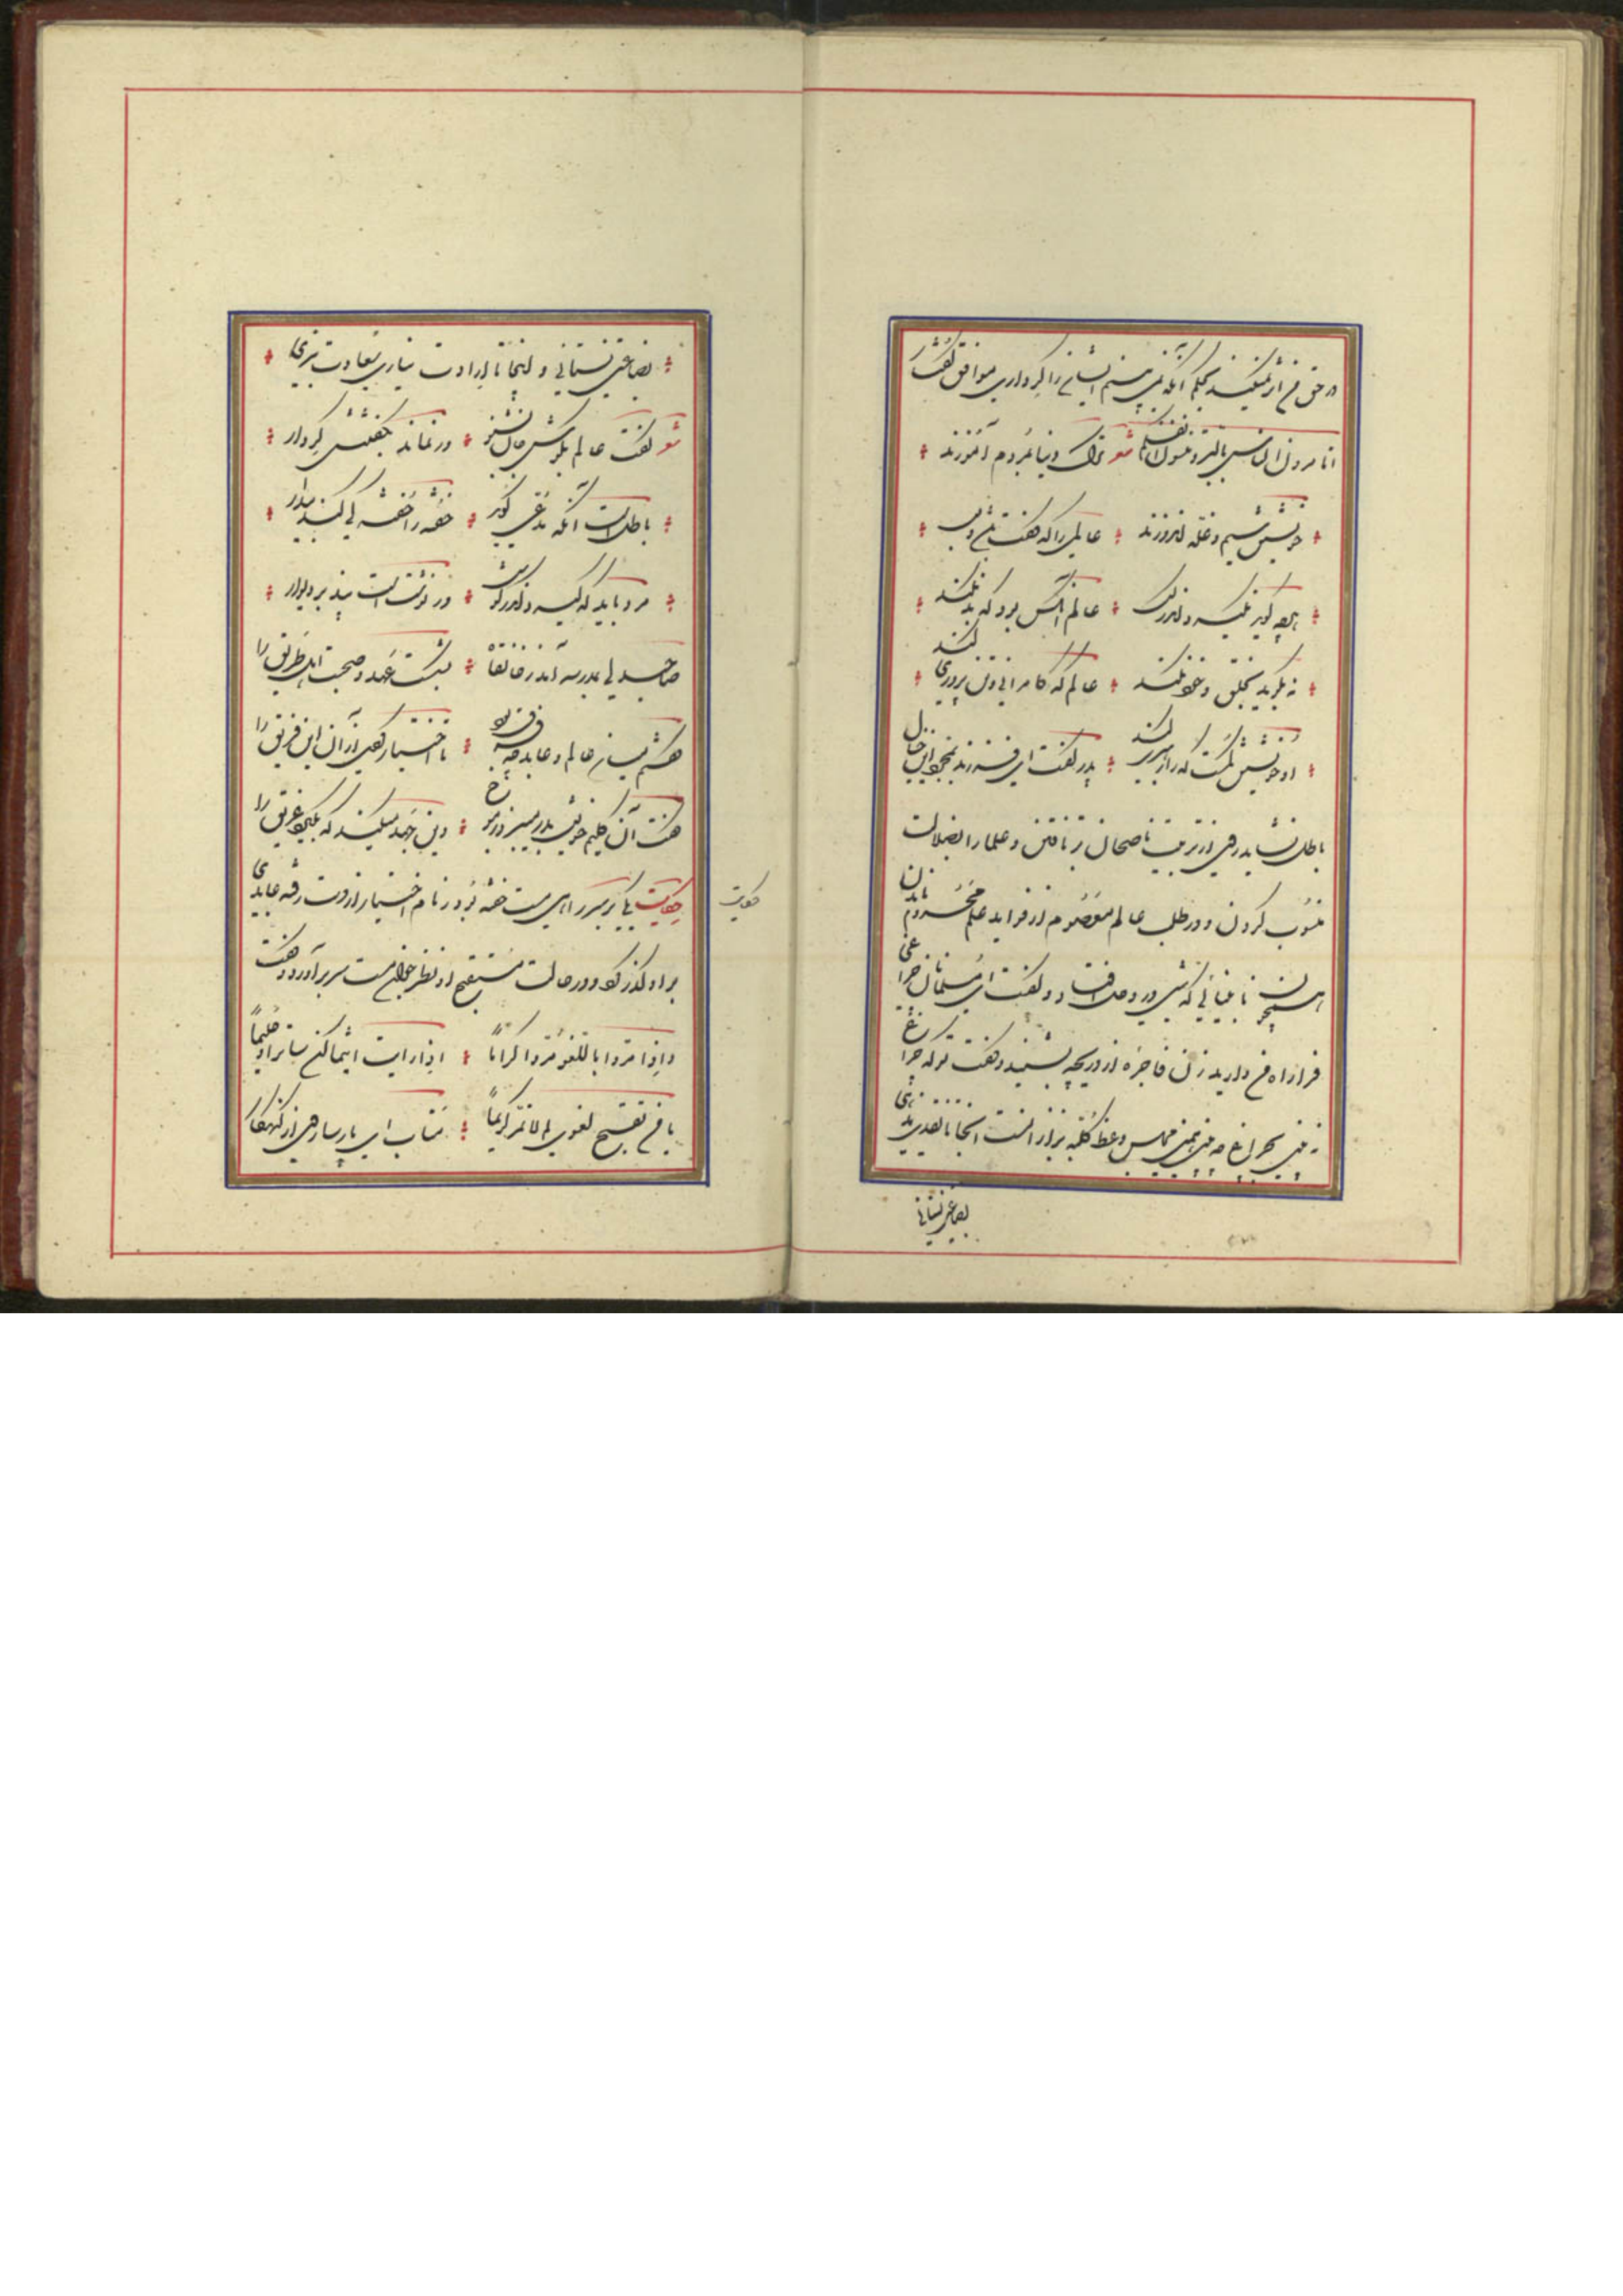 در حق من اثر نمیکند بحکم آنکه نمی بینم ایشان را کرداری موافق گفتار
اتامرون الناس بالبر و تنسون انفسکم شعر ترک دنیا بمردم آموزند
خویشتن سیم و غله اندوزند عالمی را که گفت باشد و بس
هر چه گوید نگیرد اندر کس عالم آنکس بود که بد نکند
نه بگوید بخلق و خود نکند عالم که کامرانی و تن پروری کند
او خویشتن گمست که را رهبری کند پدر گفت ای فرزند بمجرد این خیال
باطل نشاید روی از تربیت ناصحان بر تافتن و علما را بضلالت
منسوب کردن و در طلب عالم معصوم از فواید علم محروم ماندن
همچون نابینائی که شبی در وحل افتاد و گفت ای مسلمانان چراغی
فرا راه من دارید زن فاجره از دریچه بشنید و گفت تو که چراغ
نه بینی بچراغ چه بینی همچنین مجلس وعظ کلبه بزاز است آنجا تا نقدی ندهی
بضاعتی نستانی
بضاعتی نستانی و اینجا تا ارادت نیاری سعادت نبری
شعر گفت عالم بگوش جان بشنو ور نماند بگفتنش کردار
باطل است آنکه مدعی گوید خفته را خفته کی کند بیدار
مرد باید که گیرد اندر گوش ور نوشت است پند بر دیوار
صاحبدلی بمدرسه آمد ز خانقاه بشکست عهد و صحبت اهل طریق را
گفتم میان عالم و عابد چه فرق بود تا اختیار کردی از آن این فریق را
گفت آن گلیم خویش بدر میبرد ز موج وین جهد میکند که بگیرد غریق را
حکایت
حکایت یکی بر سر راهی مست خفته بود و زمام اختیار از دست رفته عابدی
بر او گذر کرد و در حالت مستقبح او نظر جوان مست سر برآورد و گفت
و اذا مروا باللغو مروا کراما اذا رایت اثیما کن ساترا و حلیما
یا من تقبح لغوی لم لا تمر کریما متاب ای پارسا روی از گنهکار